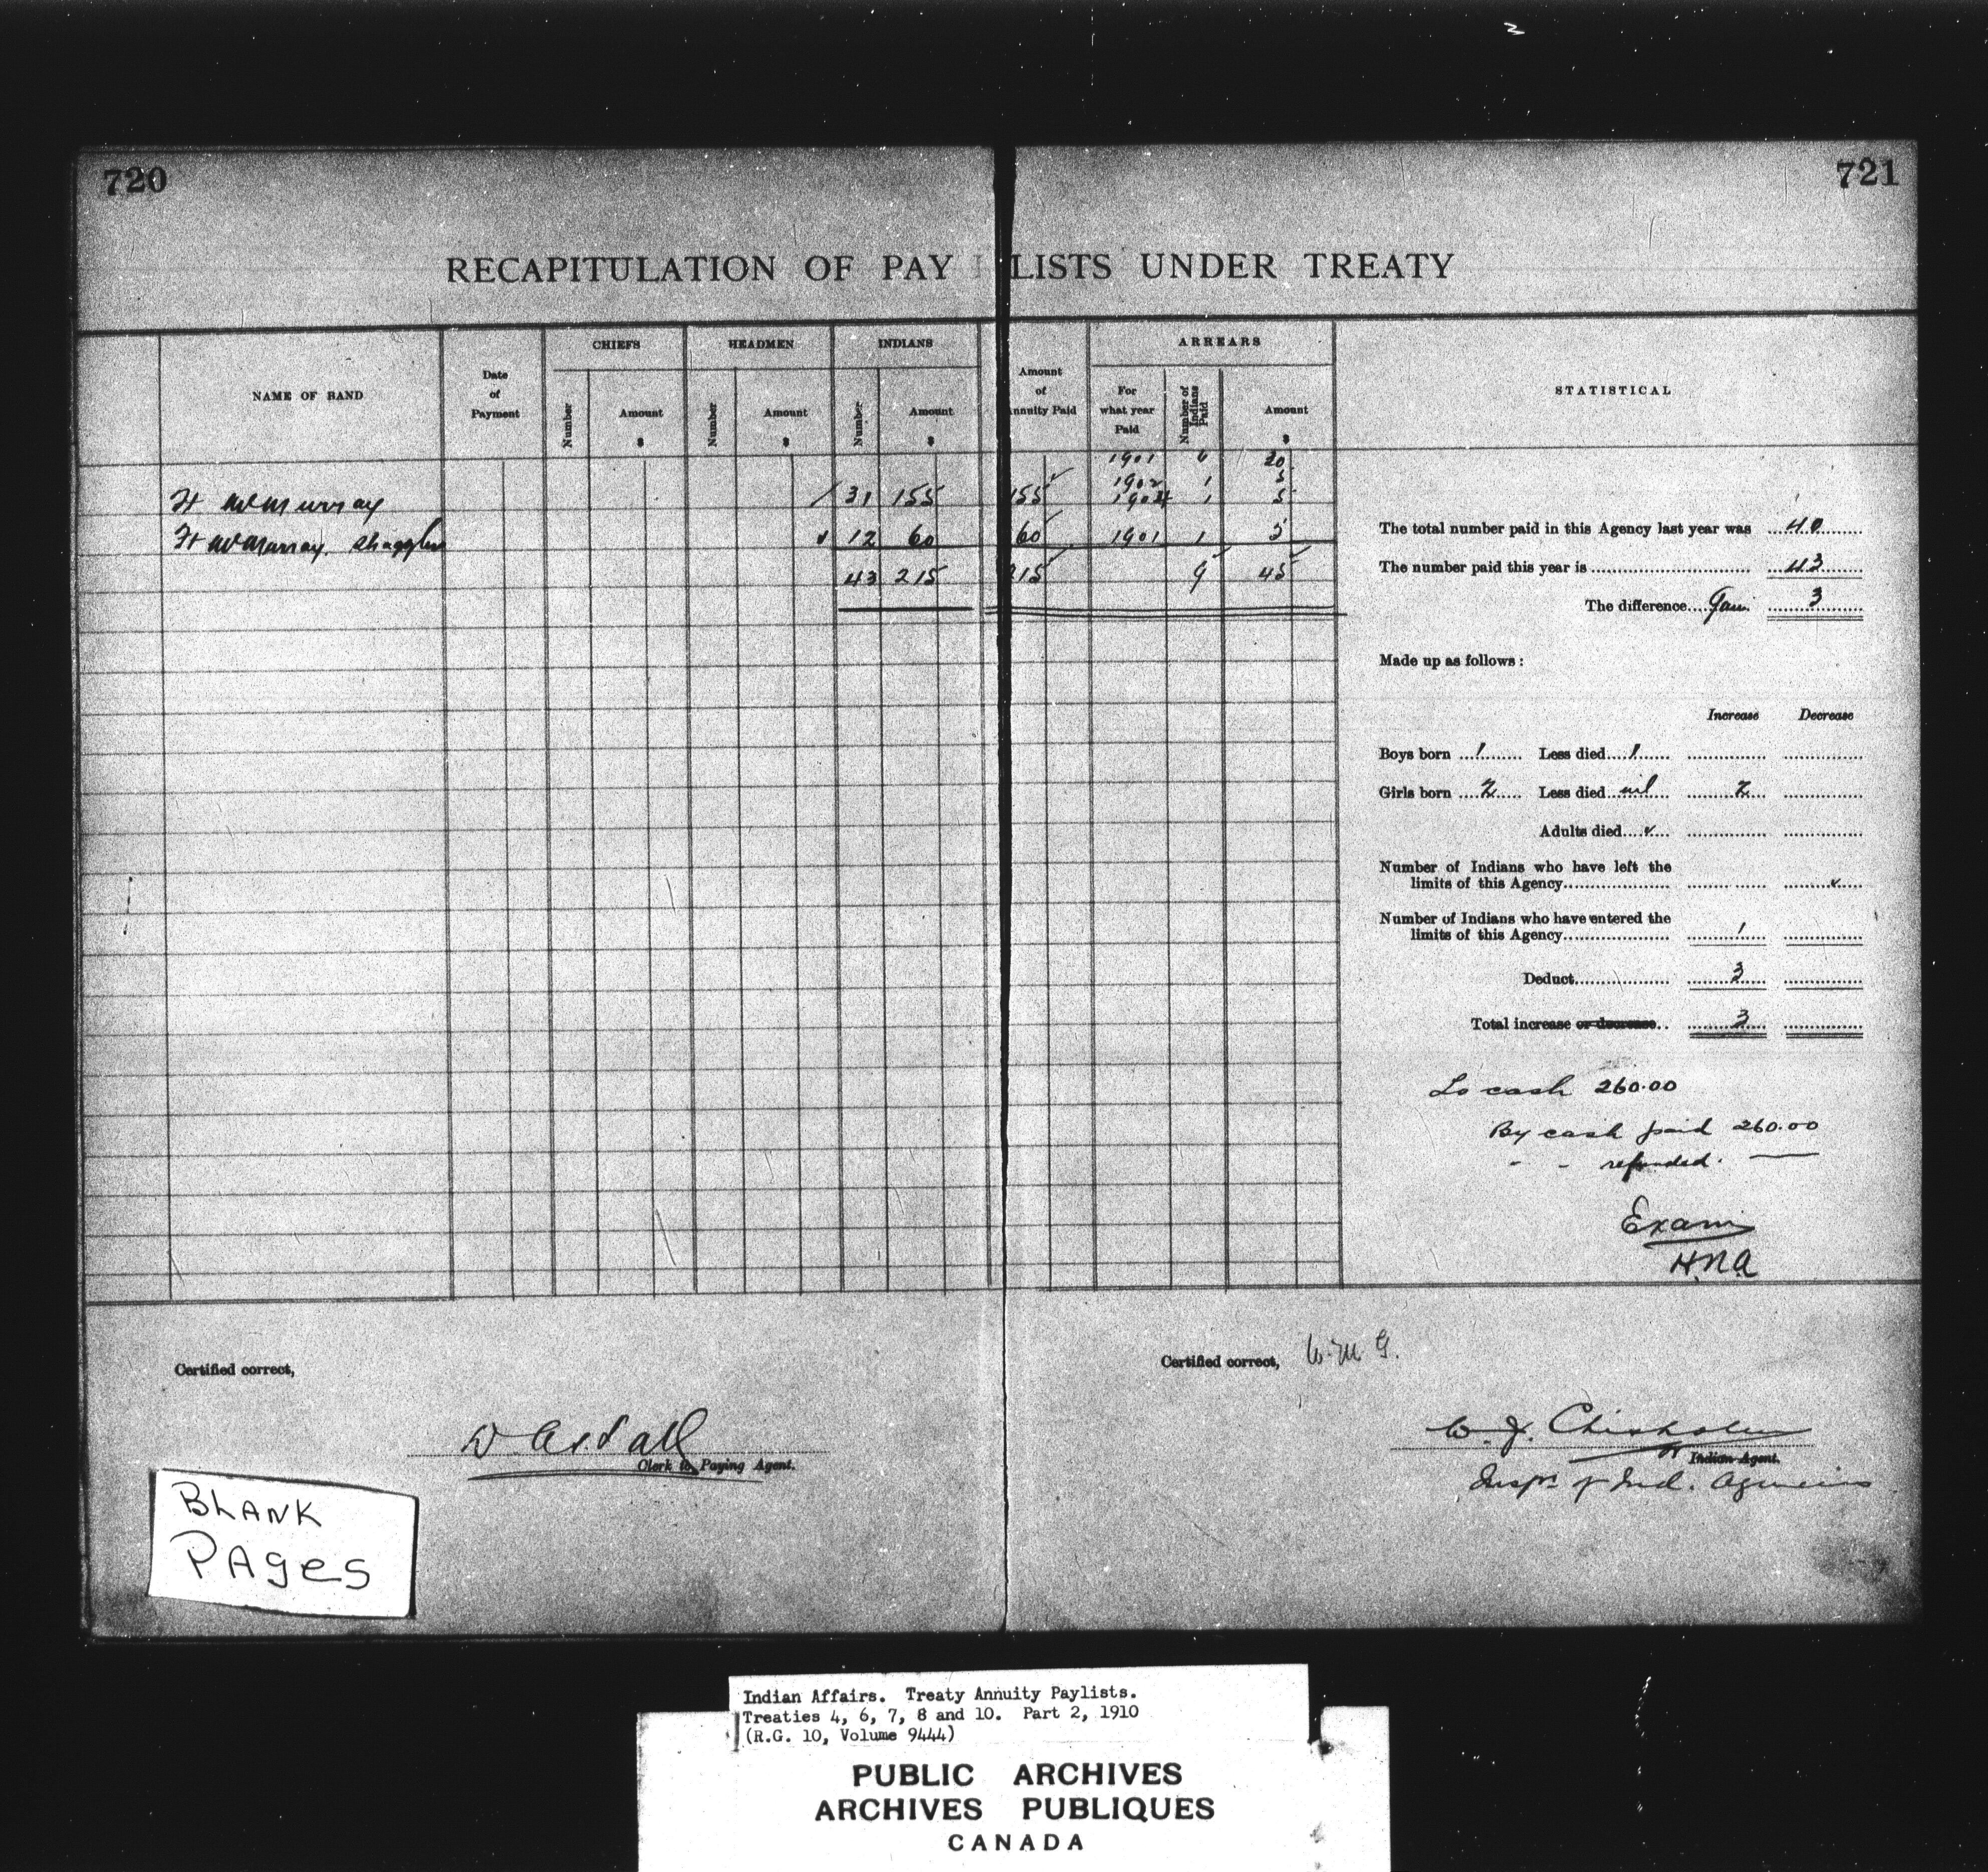 720
721
RECAPITULATION OF PAY LISTS UNDER TREATY
NAME OF BAND
Date of Payment
CHIEFS
Number
Amount $
HEADMEN
Number
Amount $
INDIANS
Number
Amount $
Amount of Annuity Paid
ARREARS
For what year Paid
Number of Indians Paid
Amount $
STATISTICAL
1901 20
1902 1 5
Ft McMurray 31 155 155 1904 1 5
Ft McMurray. 12 60 60 1901 1 5
43 215 215 9 45
The total number paid in this Agency last year was 40
The number paid this year is 43
The difference Gain 3
Made up as follows :
Increase Decrease
Boys born 1 Less died 1
Girls born 2 Less died nil 2
Adults died
Number of Indians who have left the
limits of this Agency
Number of Indians who have entered the
limits of this Agency 1
Deduct 3
Total increase or decrease 3
To cash 260.00
By cash paid 260.00
" " refunded. —
Exam
H.N.A
Certified correct,
Clerk to Paying Agent.
Certified correct, W.M G.
W. J. Chisholm
Indian Agent.
Inspr of Ind. Agencies
BLANK
PAgeS
Indian Affairs. Treaty Annuity Paylists.
Treaties 4, 6, 7, 8 and 10. Part 2, 1910
(R.G. 10, Volume 9444)
PUBLIC ARCHIVES
ARCHIVES PUBLIQUES
CANADA